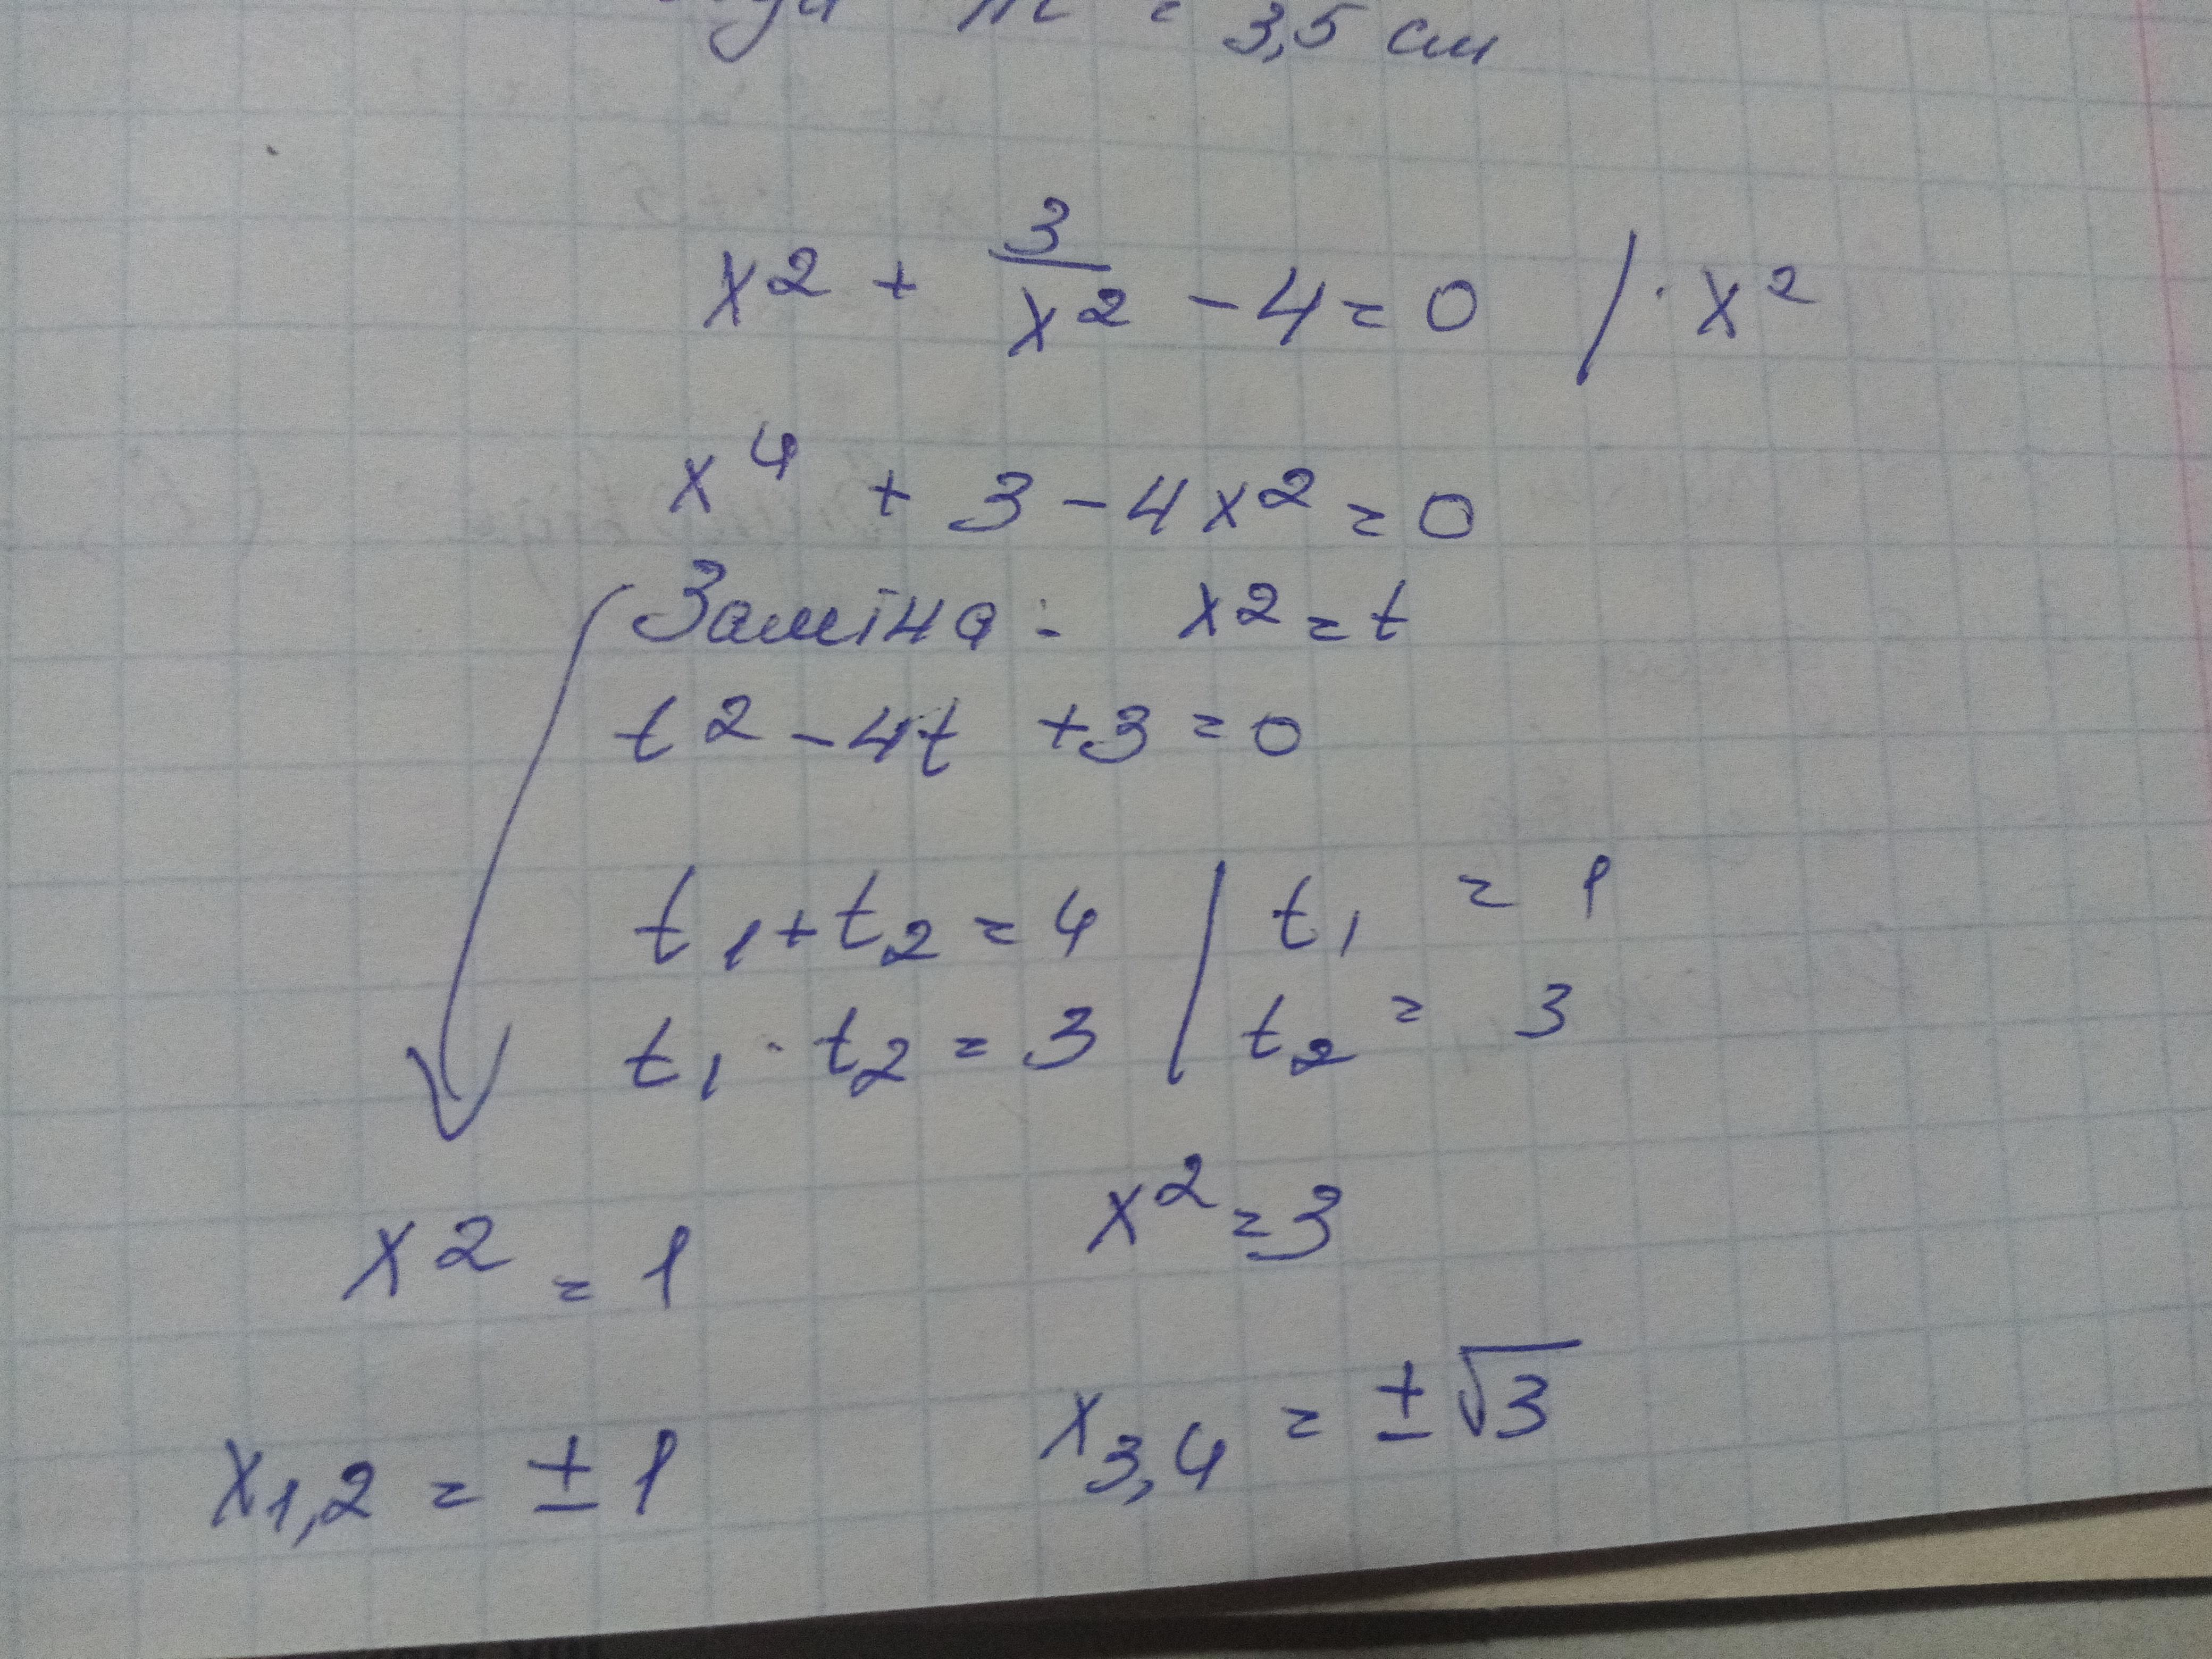 = 3,5 см
x² + 3/x² - 4 = 0 / · x²
x⁴ + 3 - 4x² = 0
Заміна: x² = t
t² - 4t + 3 = 0
t₁ + t₂ = 4 | t₁ = 1
t₁ · t₂ = 3 | t₂ = 3
x² = 1 x² = 3
x₁,₂ = ± 1 x₃,₄ = ± √3